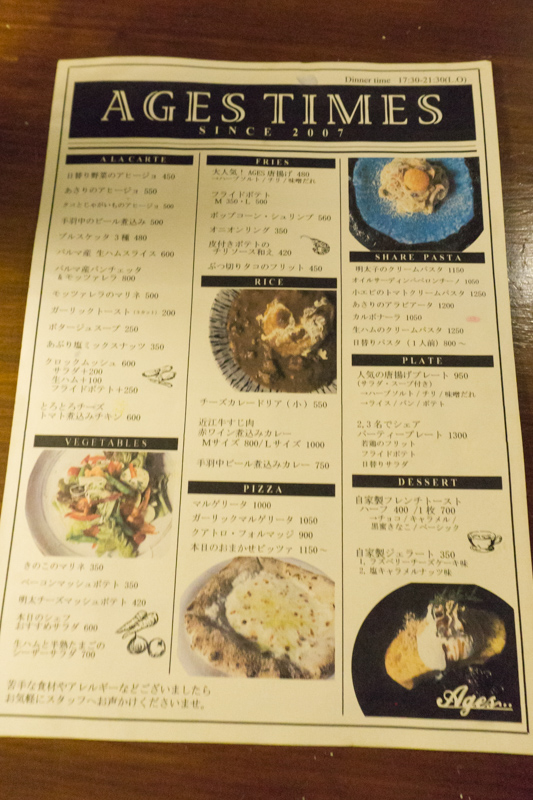 Dinner time 17:30-21:30(L.O)
AGES TIMES
SINCE 2007
A LA CARTE
日替り野菜のアヒージョ 450
あさりのアヒージョ 550
500
手羽中のビール煮込み 500
ブルスケッタ 3種 480
パルマ産 生ハムスライス 600
パルマ産パンチェッタ
&モッツァレラ 800
モッツァレラのマリネ 500
ガーリックトースト 200
ポタージュスープ 250
あぶり塩ミックスナッツ 350
クロックムッシュ 600
サラダ+200
生ハム+100
フライドポテト+250
とろとろチーズ
トマト煮込みチキン 600
VEGETABLES
きのこのマリネ 350
ベーコンマッシュポテト 350
明太チーズマッシュポテト 420
本日のシェフ
おすすめサラダ 600
生ハムと半熟たまごの
シーザーサラダ 700
苦手な食材やアレルギーなどございましたら
お気軽にスタッフへお声かけくださいませ。
FRIES
大人気!AGES唐揚げ 480
→ハーブソルト / チリ / 味噌だれ
フライドポテト
M 350・L 500
ポップコーン・シュリンプ 560
オニオンリング 350
皮付きポテトの
チリソース和え 420
ぶつ切りタコのフリット 450
RICE
チーズカレードリア(小)550
近江牛すじ肉
赤ワイン煮込みカレー
Mサイズ 800/Lサイズ 1000
手羽中ビール煮込みカレー 750
PIZZA
マルゲリータ 1000
ガーリックマルゲリータ 1050
クアトロ・フォルマッジ 900
本日のおまかせピッツァ 1150～
SHARE PASTA
明太子のクリームパスタ 1150
オイルサーディンペペロンチーノ 1050
小エビのトマトクリームパスタ 1250
あさりのアラビアータ 1200
カルボナーラ 1050
生ハムのクリームパスタ 1250
日替りパスタ(1人前)800～
PLATE
人気の唐揚げプレート 950
(サラダ・スープ付き)
→ハーブソルト / チリ / 味噌だれ
→ライス / パン / ポテト
2,3名でシェア
パーティープレート 1300
若鶏のフリット
フライドポテト
日替りサラダ
DESSERT
自家製フレンチトースト
ハーフ 400 /1枚 700
→チョコ / キャラメル /
黒蜜きなこ / ベーシック
自家製ジェラート 350
1. ラズベリーチーズケーキ味
2. 塩キャラメルナッツ味
Ages...